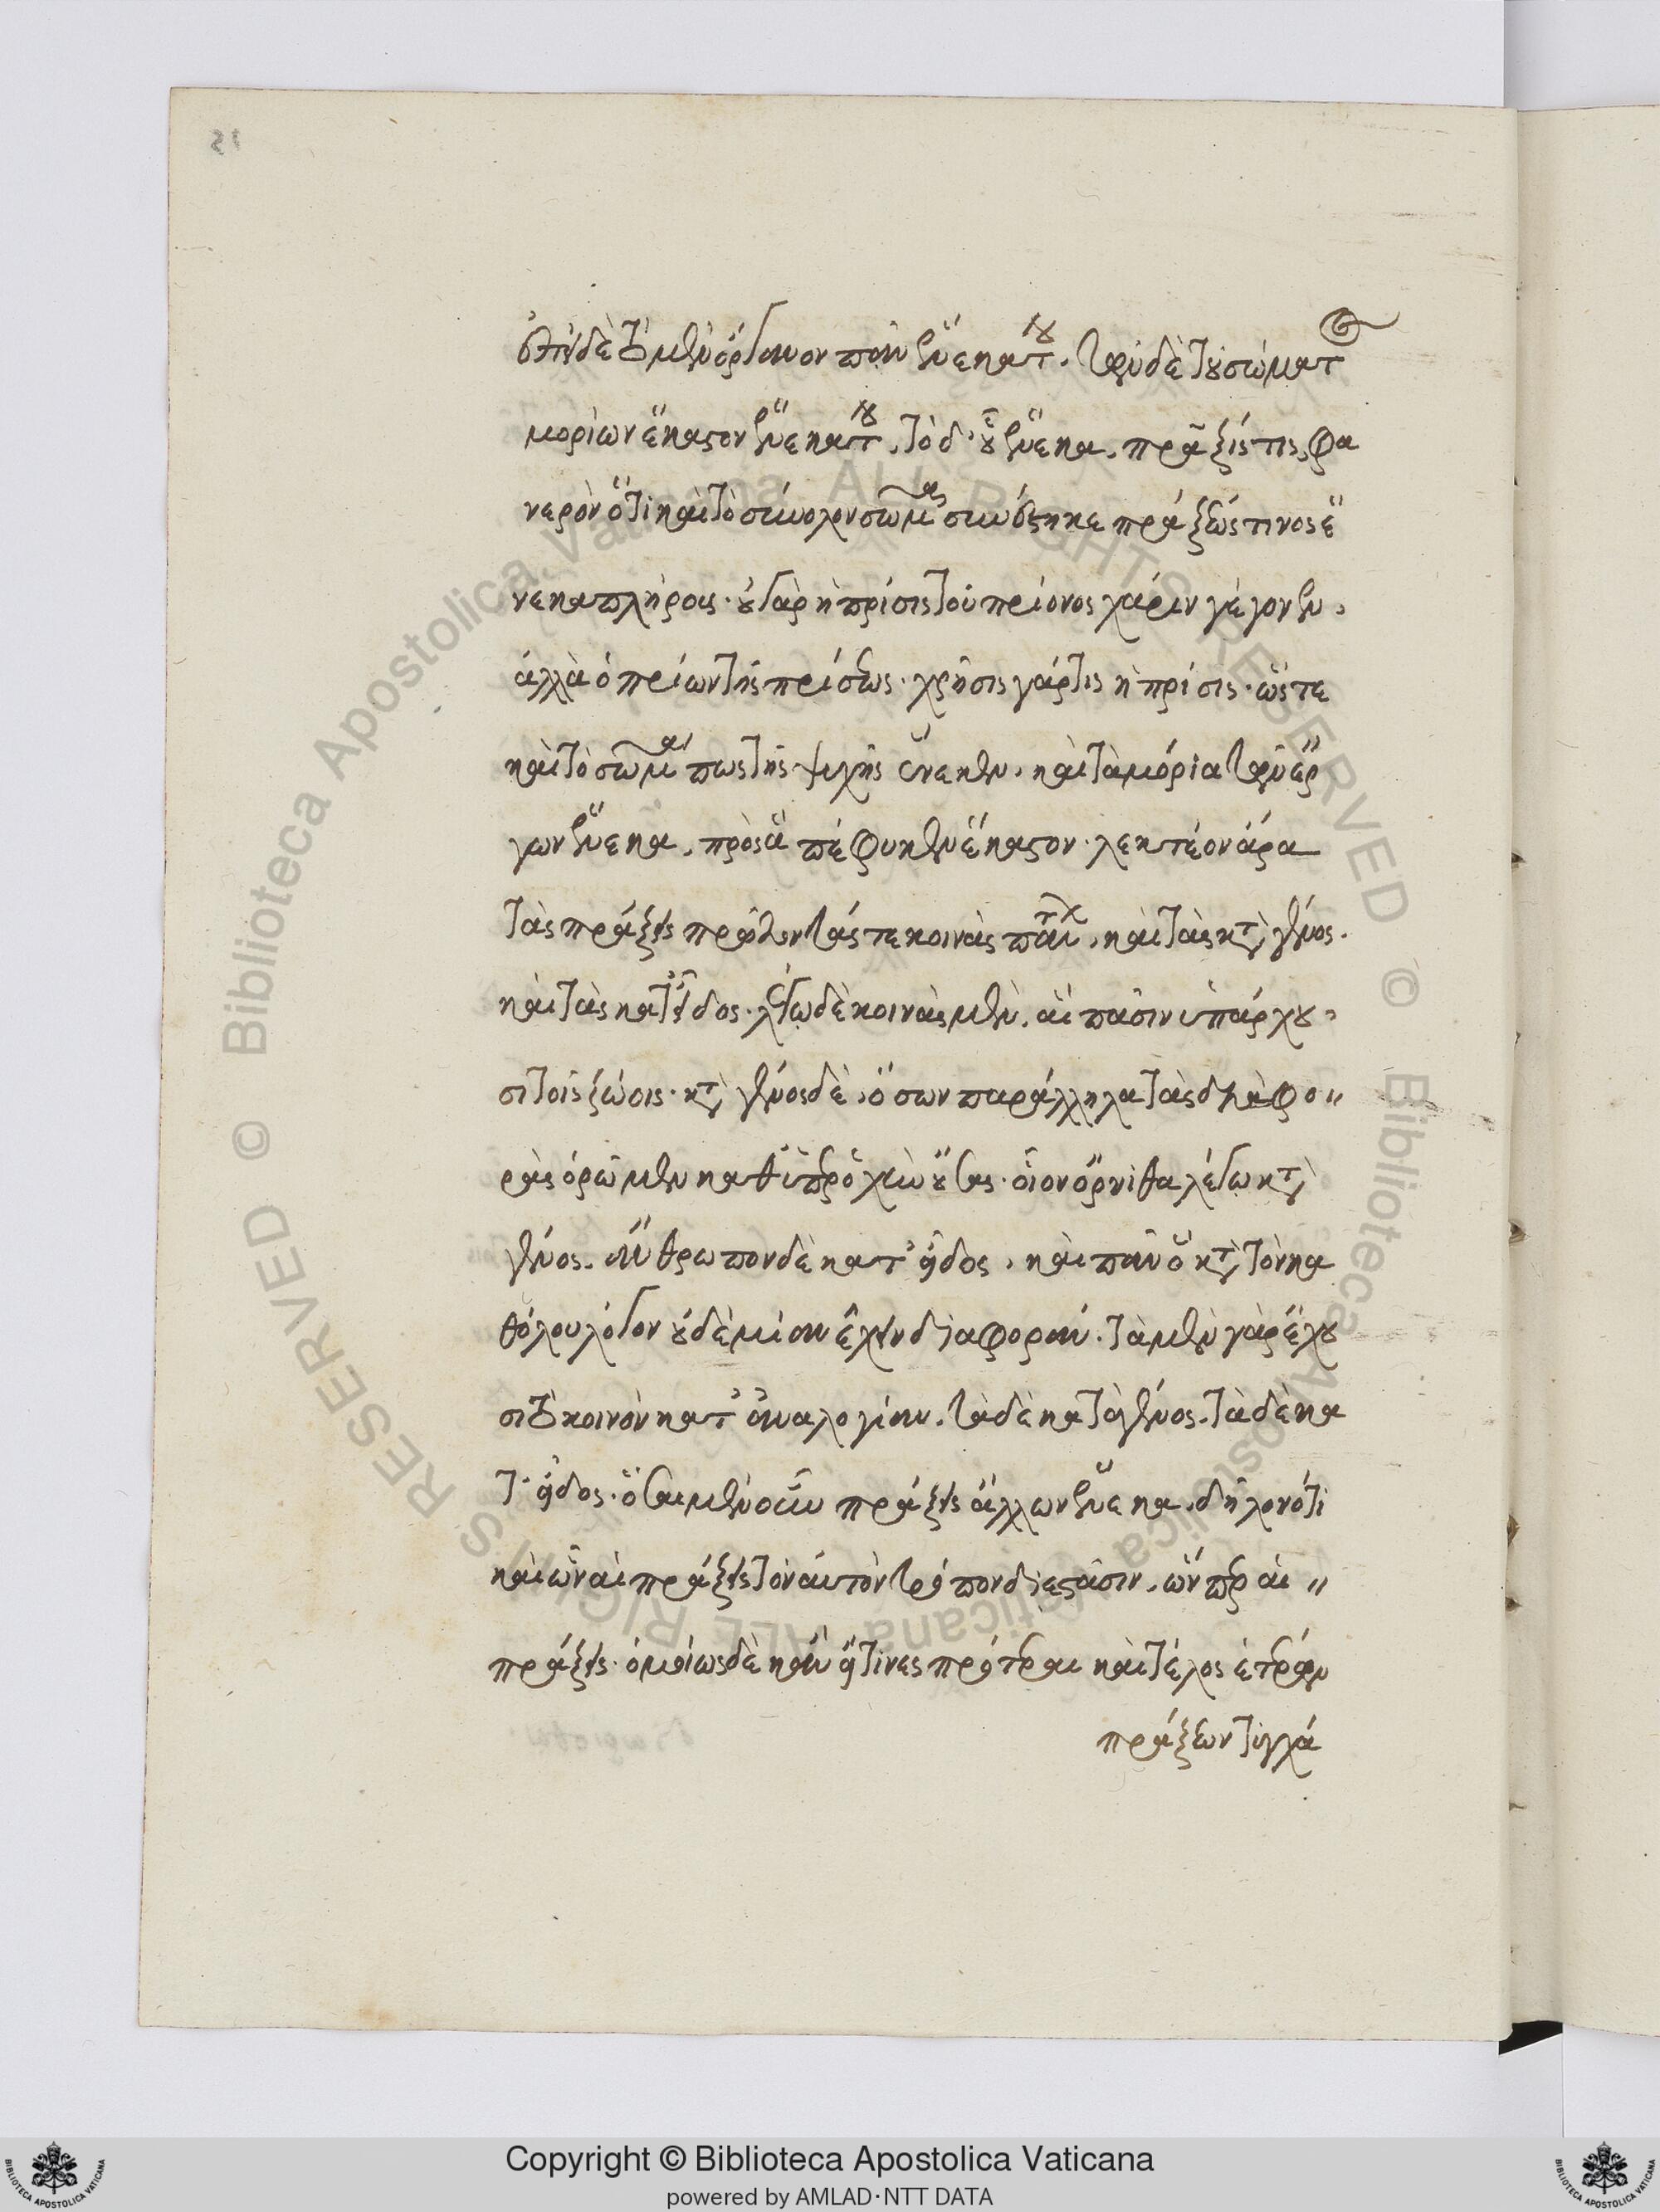 ἐπεὶ δὲ τὸ μὲν ὄργανον πᾶν ἕνεκά του. τῶν δὲ τοῦ σώματος
μορίων ἕκαστον ἕνεκά του. τὸ δ' οὗ ἕνεκα, πρᾶξίς τις, φα
νερὸν ὅτι καὶ τὸ σύνολον σῶμα συνέστηκε πράξεώς τινος ἕ
νεκα πλήρους. οὐ γὰρ ἡ πρίσις τοῦ πρίονος χάριν γέγονεν,
ἀλλὰ ὁ πρίων τῆς πρίσεως. χρῆσις γάρ τις ἡ πρίσις. ὥστε
καὶ τὸ σῶμά πως τῆς ψυχῆς ἕνεκεν, καὶ τὰ μόρια τῶν ἔρ
γων ἕνεκα, πρὸς ἃ πέφυκεν ἕκαστον. λεκτέον ἄρα
τὰς πράξεις πρῶτον τάς τε κοινὰς πάντων, καὶ τὰς κατὰ γένος.
καὶ τὰς κατ' εἶδος. λέγω δὲ κοινὰς μὲν, αἳ πᾶσιν ὑπάρχου
σι τοῖς ζώοις. κατὰ γένος δὲ, ὅσων παράλληλα τὰς διαφο
ρὰς ὁρῶμεν καθ' ὑπεροχὴν οὔσας. οἷον ὄρνιθα λέγω κατὰ
γένος. ἄνθρωπον δὲ κατ' εἶδος, καὶ πᾶν ὃ κατὰ τὸν κα
θόλου λόγον οὐδεμίαν ἔχειν διαφοράν. τὰ μὲν γὰρ ἔχου
σι τὸ κοινὸν κατ' ἀναλογίαν. τὰ δὲ κατὰ γένος. τὰ δὲ κα
τ' εἶδος. ὅσαι μὲν οὖν πράξεις ἄλλων ἕνεκα. δῆλον ὅτι
καὶ ὧν αἱ πράξεις τὸν αὐτὸν τρόπον διεστᾶσιν, ὧνπερ αἱ
πράξεις. ὁμοίως δὲ κἂν εἴ τινες πρότεραι καὶ τέλος ἑτέρων
πράξεων τυγχά